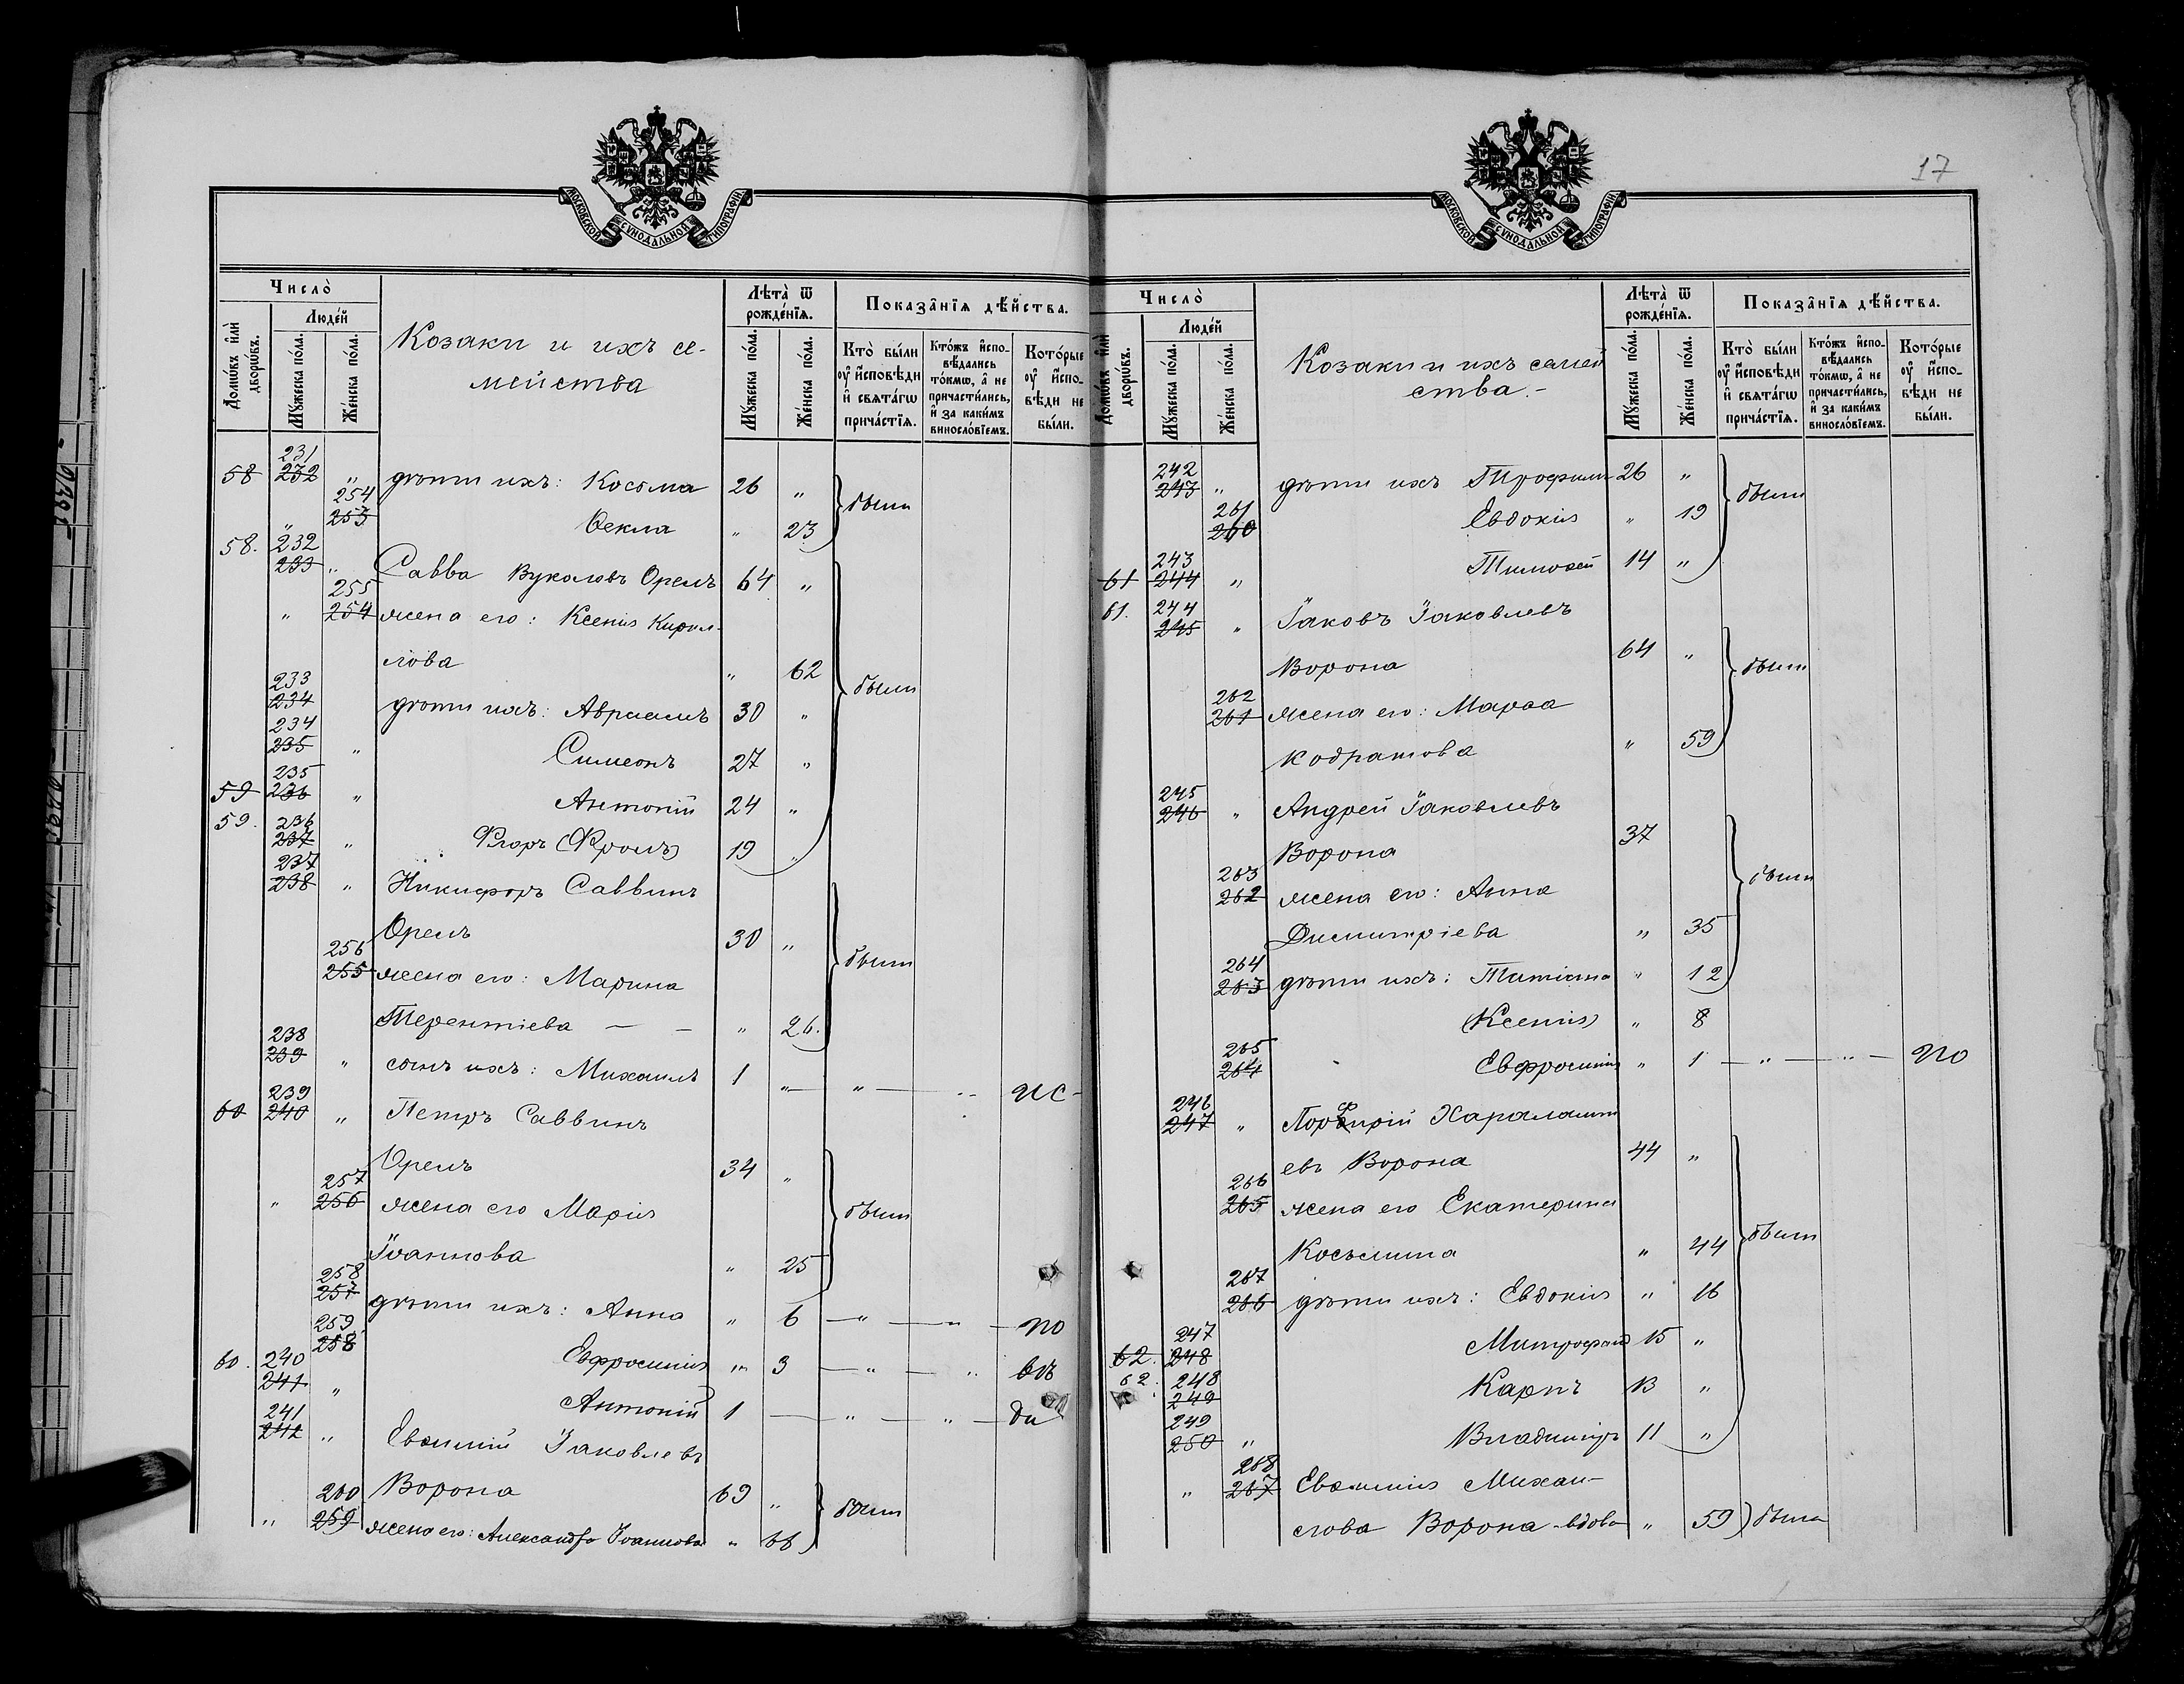 МОСКОВСКОЙ СѴНОДАЛЬНОЙ ТИПОГРАФІИ
Число̀
Домѡ́въ и҆лѝ дворѡ́въ.
Люде́й
Мꙋ́жеска по́ла.
Же́нска по́ла.
Козаки и ихъ се-
мейства
Лѣта̀ ѿ рожде́нїѧ.
Мꙋ́жеска по́ла.
Же́нска по́ла.
Показа̑нїѧ дѣ́йства.
Кто̀ бы́ли ᲂу҆ и҆сповѣди и҆ свѧта́гѡ прича́стїѧ.
Кто́жъ и҆спо-вѣ́дались то́кмѡ, а҆ не причасти́лись, и҆ за каки́мъ винословїемъ.
Кото́рые ᲂу҆ и҆спо-вѣди не бы́ли.
58 231 232 " дѣти ихъ: Косьма 26 " были
254 253 Ѳекла " 23
58. 232 233 " Савва Вуколовъ Орелъ 64 "
" 255 254 жена его: Ксенія Кирил-
лова " 62 были
233 234 дѣти ихъ: Авраамъ 30 "
234 235 " Симеонъ 27 "
59 235 236 " Антоній 24 "
59. 236 237 " Флоръ (Фролъ) 19 "
237 238 " Никифоръ Саввинъ
Орелъ 30 " были
256 255 жена его: Марина
Терентіева — — " 26.
238 239 " сынъ ихъ: Михаилъ 1 " — " — " ис-
60 239 240 " Петръ Саввинъ
Орелъ 34 "
" 257 256 жена его Марія были
Іоаннова " 25
258 257 дѣти ихъ: Анна " 6 — " — " — по
259 258 Евфросинія " 3 — " — " вѣ
60. 240 241 " Антоній 1 — " — " — ди
241 242 " Евѳимій Іаковлевъ
Ворона 69 " были
" 260 259 жена его: Александра Іоаннова " 66
17
МОСКОВСКОЙ СѴНОДАЛЬНОЙ ТИПОГРАФІИ
Число̀
Домѡ́въ и҆лѝ дворѡ́въ.
Люде́й
Мꙋ́жеска по́ла.
Же́нска по́ла.
Козаки и ихъ семей
ства.-
Лѣта̀ ѿ рожде́нїѧ.
Мꙋ́жеска по́ла.
Же́нска по́ла.
Показа̑нїѧ дѣ́йства.
Кто̀ бы́ли ᲂу҆ и҆сповѣди и҆ свѧта́гѡ прича́стїѧ.
Кто́жъ и҆спо-вѣ́дались то́кмѡ, а҆ не причасти́лись, и҆ за каки́мъ винословїемъ.
Кото́рые ᲂу҆ и҆спо-вѣди не бы́ли.
242 243 " дѣти ихъ Трофимъ 26 " были
261 260 Евдокія " 19
61 243 244 " Тимоѳей 14 "
61. 244 245 " Іаковъ Іаковлевъ
Ворона 64 " были
262 261 жена его: Марѳа
Кодратова " 59
245 246 " Андрей Іаковлевъ
Ворона 37
263 262 жена его: Анна были
Димитріева " 35
264 263 дѣти ихъ: Татіана " 12
(Ксенія) " 8
265 264 Евфросинія " 1 — " — " — по
246 247 " Порфирій Харалампі
евъ Ворона 44 "
266 265 жена его Екатерина
Косьмина " 44 были
267 266 дѣти ихъ: Евдокія " 16
62. 247 248 Митрофанъ 15 "
62. 248 249 Карпъ 13 "
249 250 " Владиміръ 11 "
" 268 267 Евѳимія Михаи-
лова Ворона - вдова " 59 была